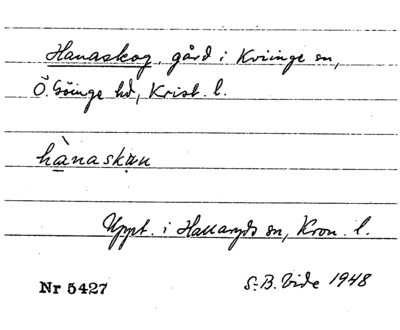 Hanaskog, gård i Kviinge sn,
Ö. Göinge hd, Krist. l.
hànask
Uppt. i Hallaryds sn, Kron. l.
Nr 5427 S.-B. Vide 1948